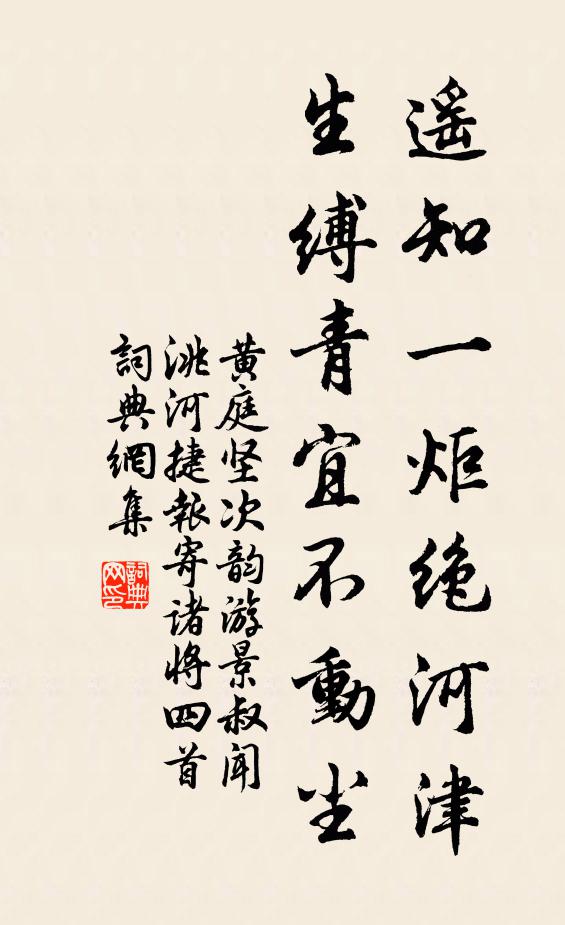 遥知一炬绝河津
生缚青宜不動尘
黄庭坚次韵游景叔闻
洮河捷报寄诸将四首
詞典網集
詞典
网印